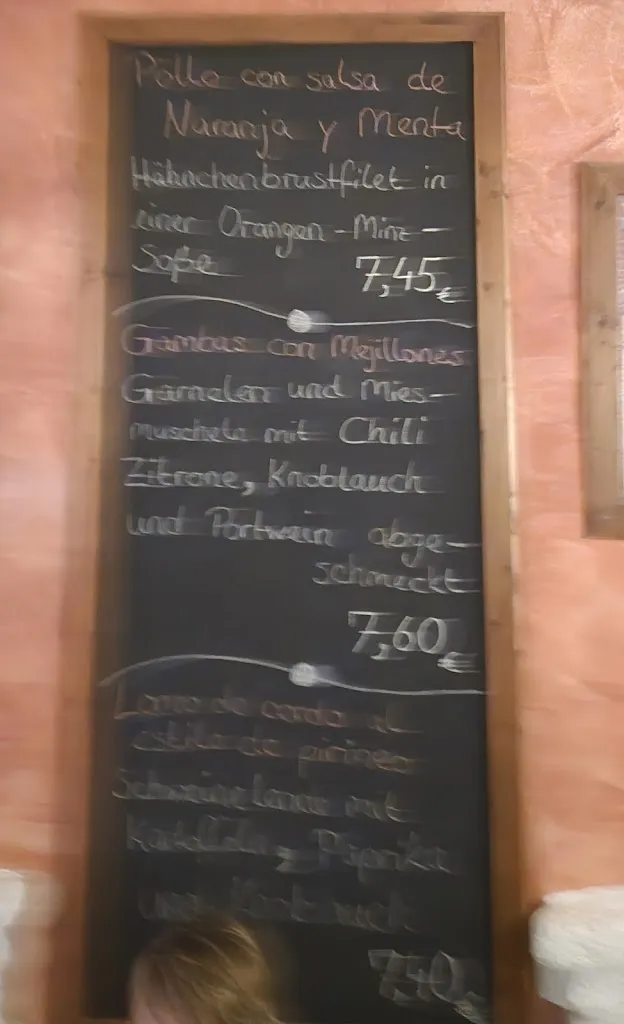 Pollo con salsa de
Naranja y Menta
Hähnchenbrustfilet in
einer Orangen-Minz-
Soße 7,45€
Gambas con Mejillones
Garnelen und Mies-
muscheln mit Chili
Zitrone, Knoblauch
und Portwein abge-
schmeckt
7,60€
Lomo de cerdo al
estilo de pirineo
Schweinelende mit
Kartoffeln, Paprika
und Knoblauch
7,40€